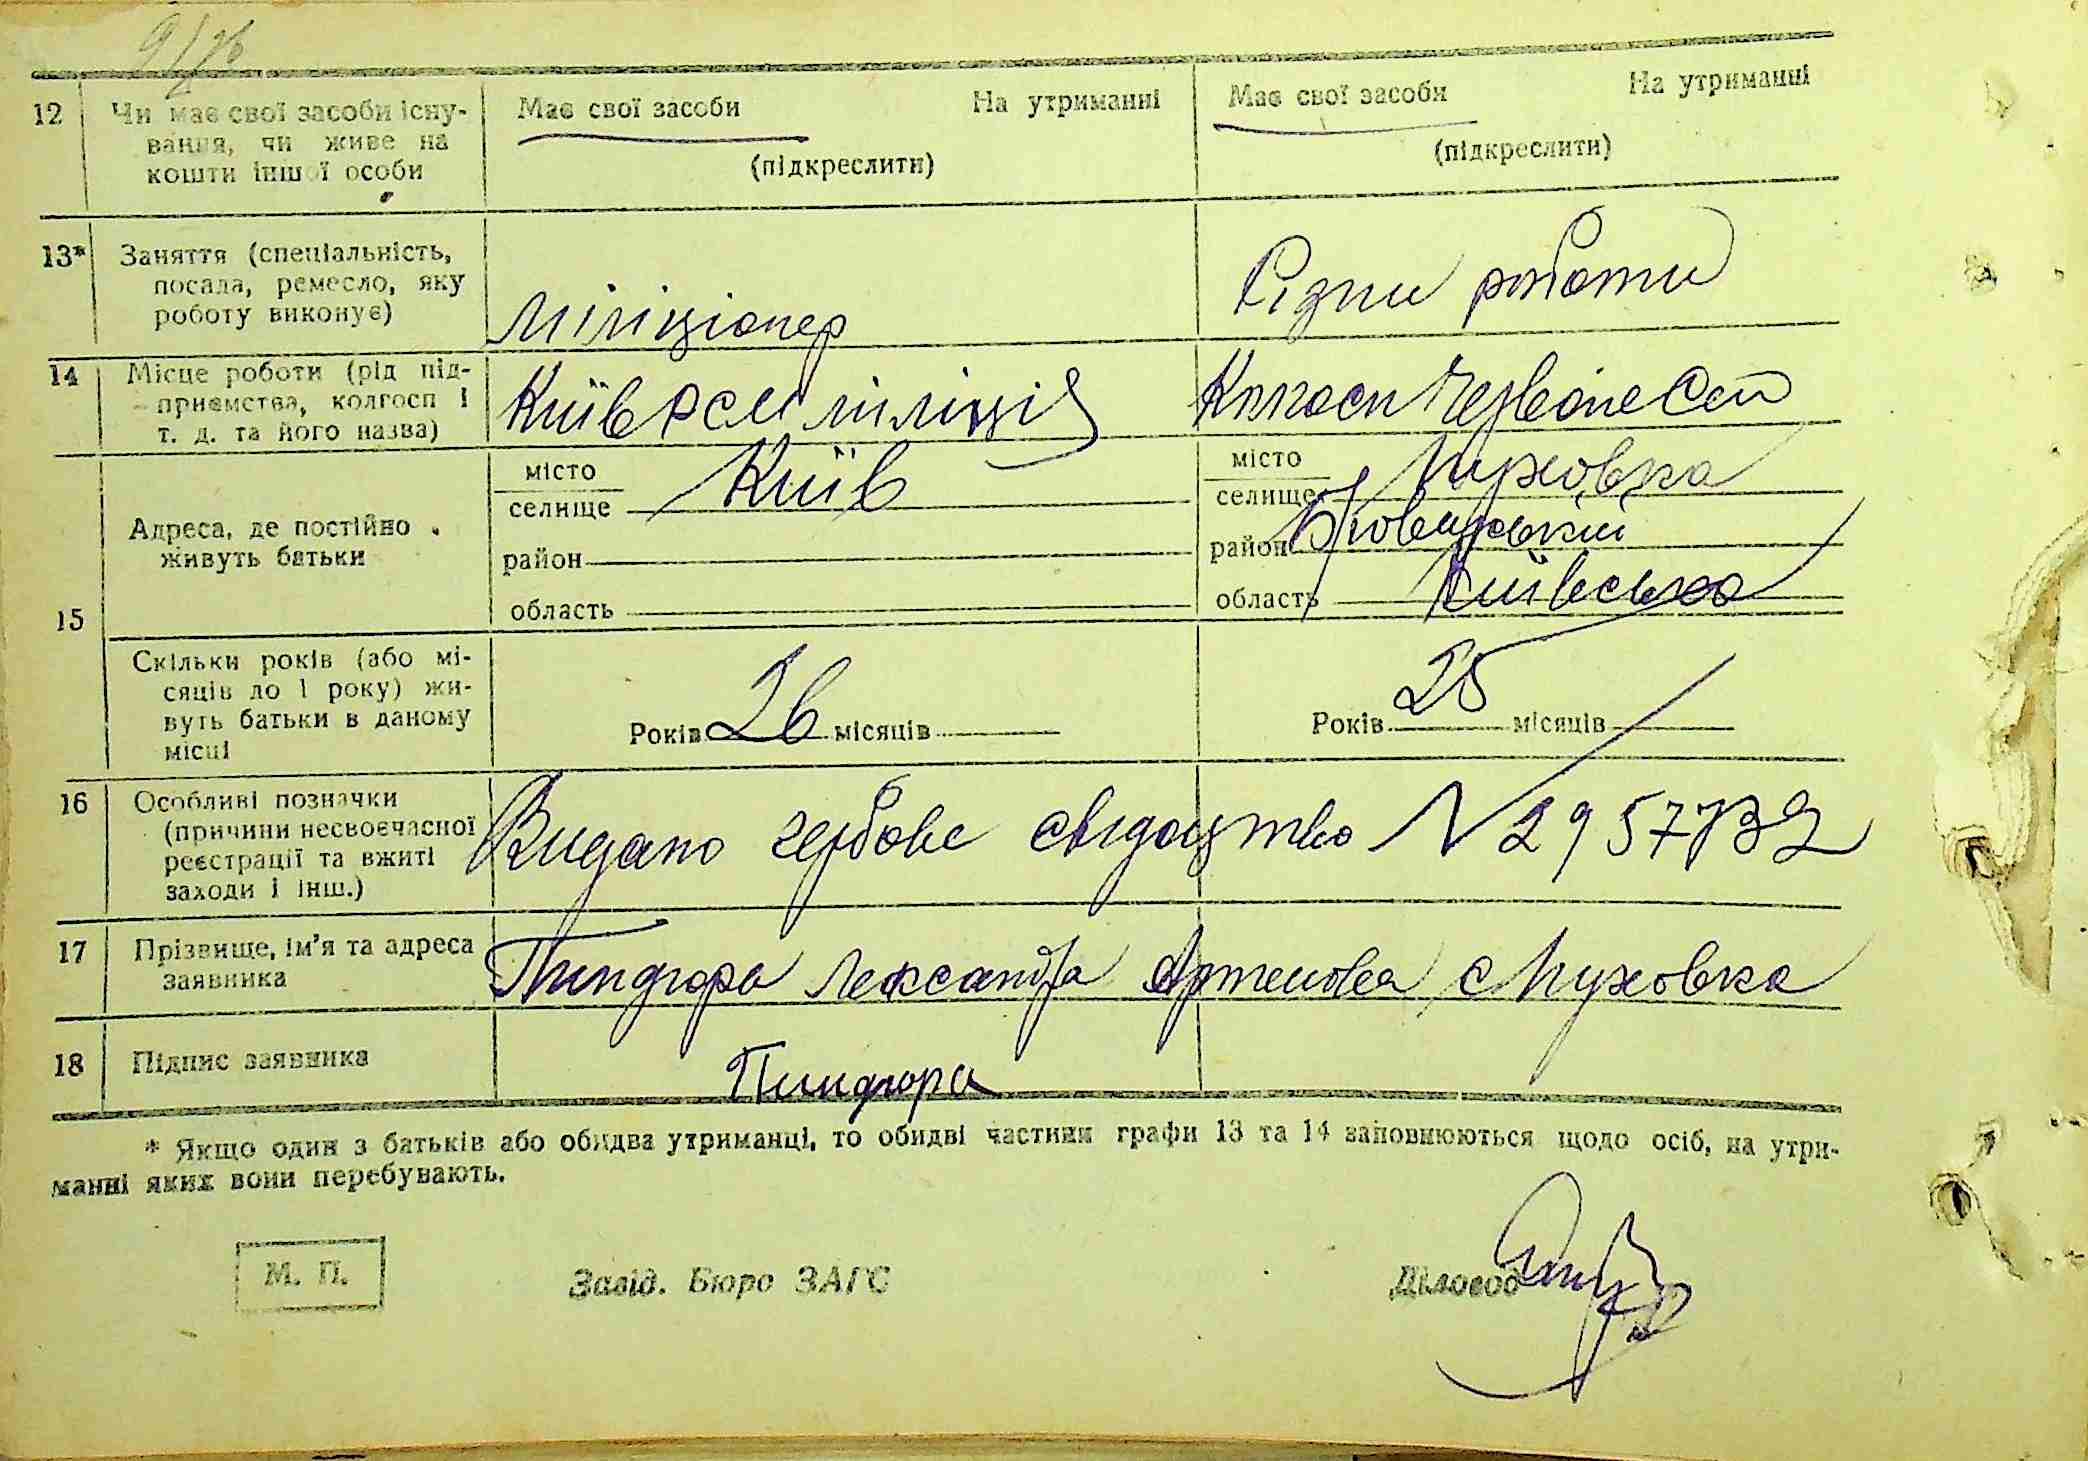 12 Чи має свої засоби існу-
вання, чи живе на
кошти іншої особи
Має свої засоби На утриманні
(підкреслити)
Має свої засоби На утриманні
(підкреслити)
13* Заняття (спеціальність,
посада, ремесло, яку
роботу виконує)
Міліціонер
Різни роботи
14 Місце роботи (рід під-
приємства, колгосп і
т. д. та його назва)
Київ міліції
Колгосп Червоне
15
Адреса, де постійно
живуть батьки
місто
селище Київ
район
область
місто
селище Пуховка
район Броварський
область Київська
Скільки років (або мі-
сяців до 1 року) жи-
вуть батьки в даному
місці
Років 26 місяців
Років 25 місяців
16 Особливі позначки
(причини несвоєчасної
реєстрації та вжиті
заходи і інш.)
Видано гербове свідоцтво N
17 Прізвище, ім'я та адреса
заявника
Пиндюра Лександра Артемовна с Пуховка
18 Підпис заявника
Пиндюра
* Якщо один з батьків або обидва утриманці, то обидві частини графи 13 та 14 заповнюються щодо осіб, на утри-
манні яких вони перебувають.
М. П.
Завід. Бюро ЗАГС
Діловод